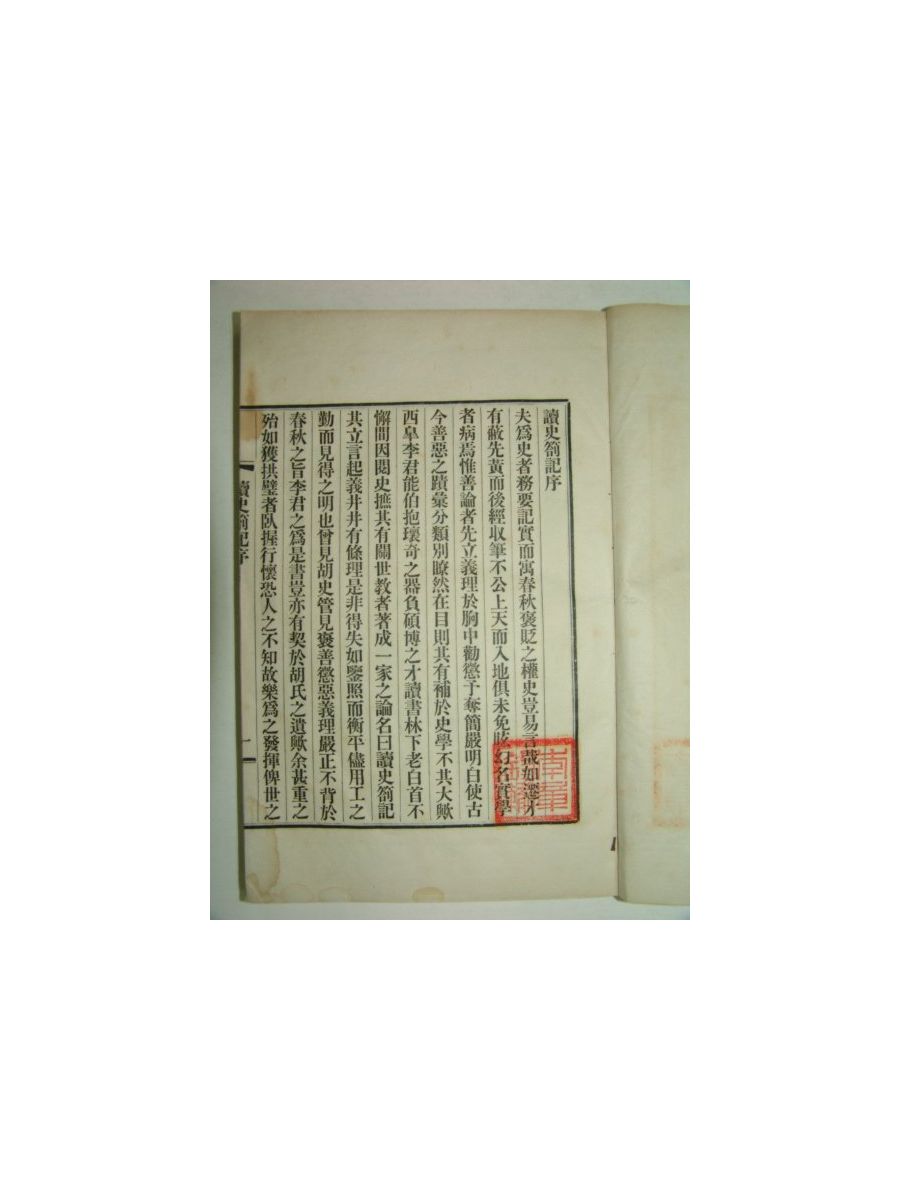 讀史劄記序
夫爲史者務要記實而寓春秋褒貶之權史豈易言哉如遷才
有蔽先黃而後經收筆不公上天而入地俱未免眩幻名實學
者病焉惟善論者先立義理於胸中勸懲予奪簡嚴明白使古
今善惡之蹟彙分類別瞭然在目則其有補於史學不其大歟
西皐李君能伯抱瓌奇之器負碩博之才讀書林下老白首不
懈間因閱史摭其有關世教者著成一家之論名曰讀史劄記
其立言起義井井有條理是非得失如鑒照而衡平儘用工之
勤而見得之明也曾見胡史管見褒善懲惡義理嚴正不背於
春秋之旨李君之爲是書豈亦有契於胡氏之遺歟余甚重之
殆如獲拱璧者臥握行懷恐人之不知故樂爲之發揮俾世之
讀史劄記序
一